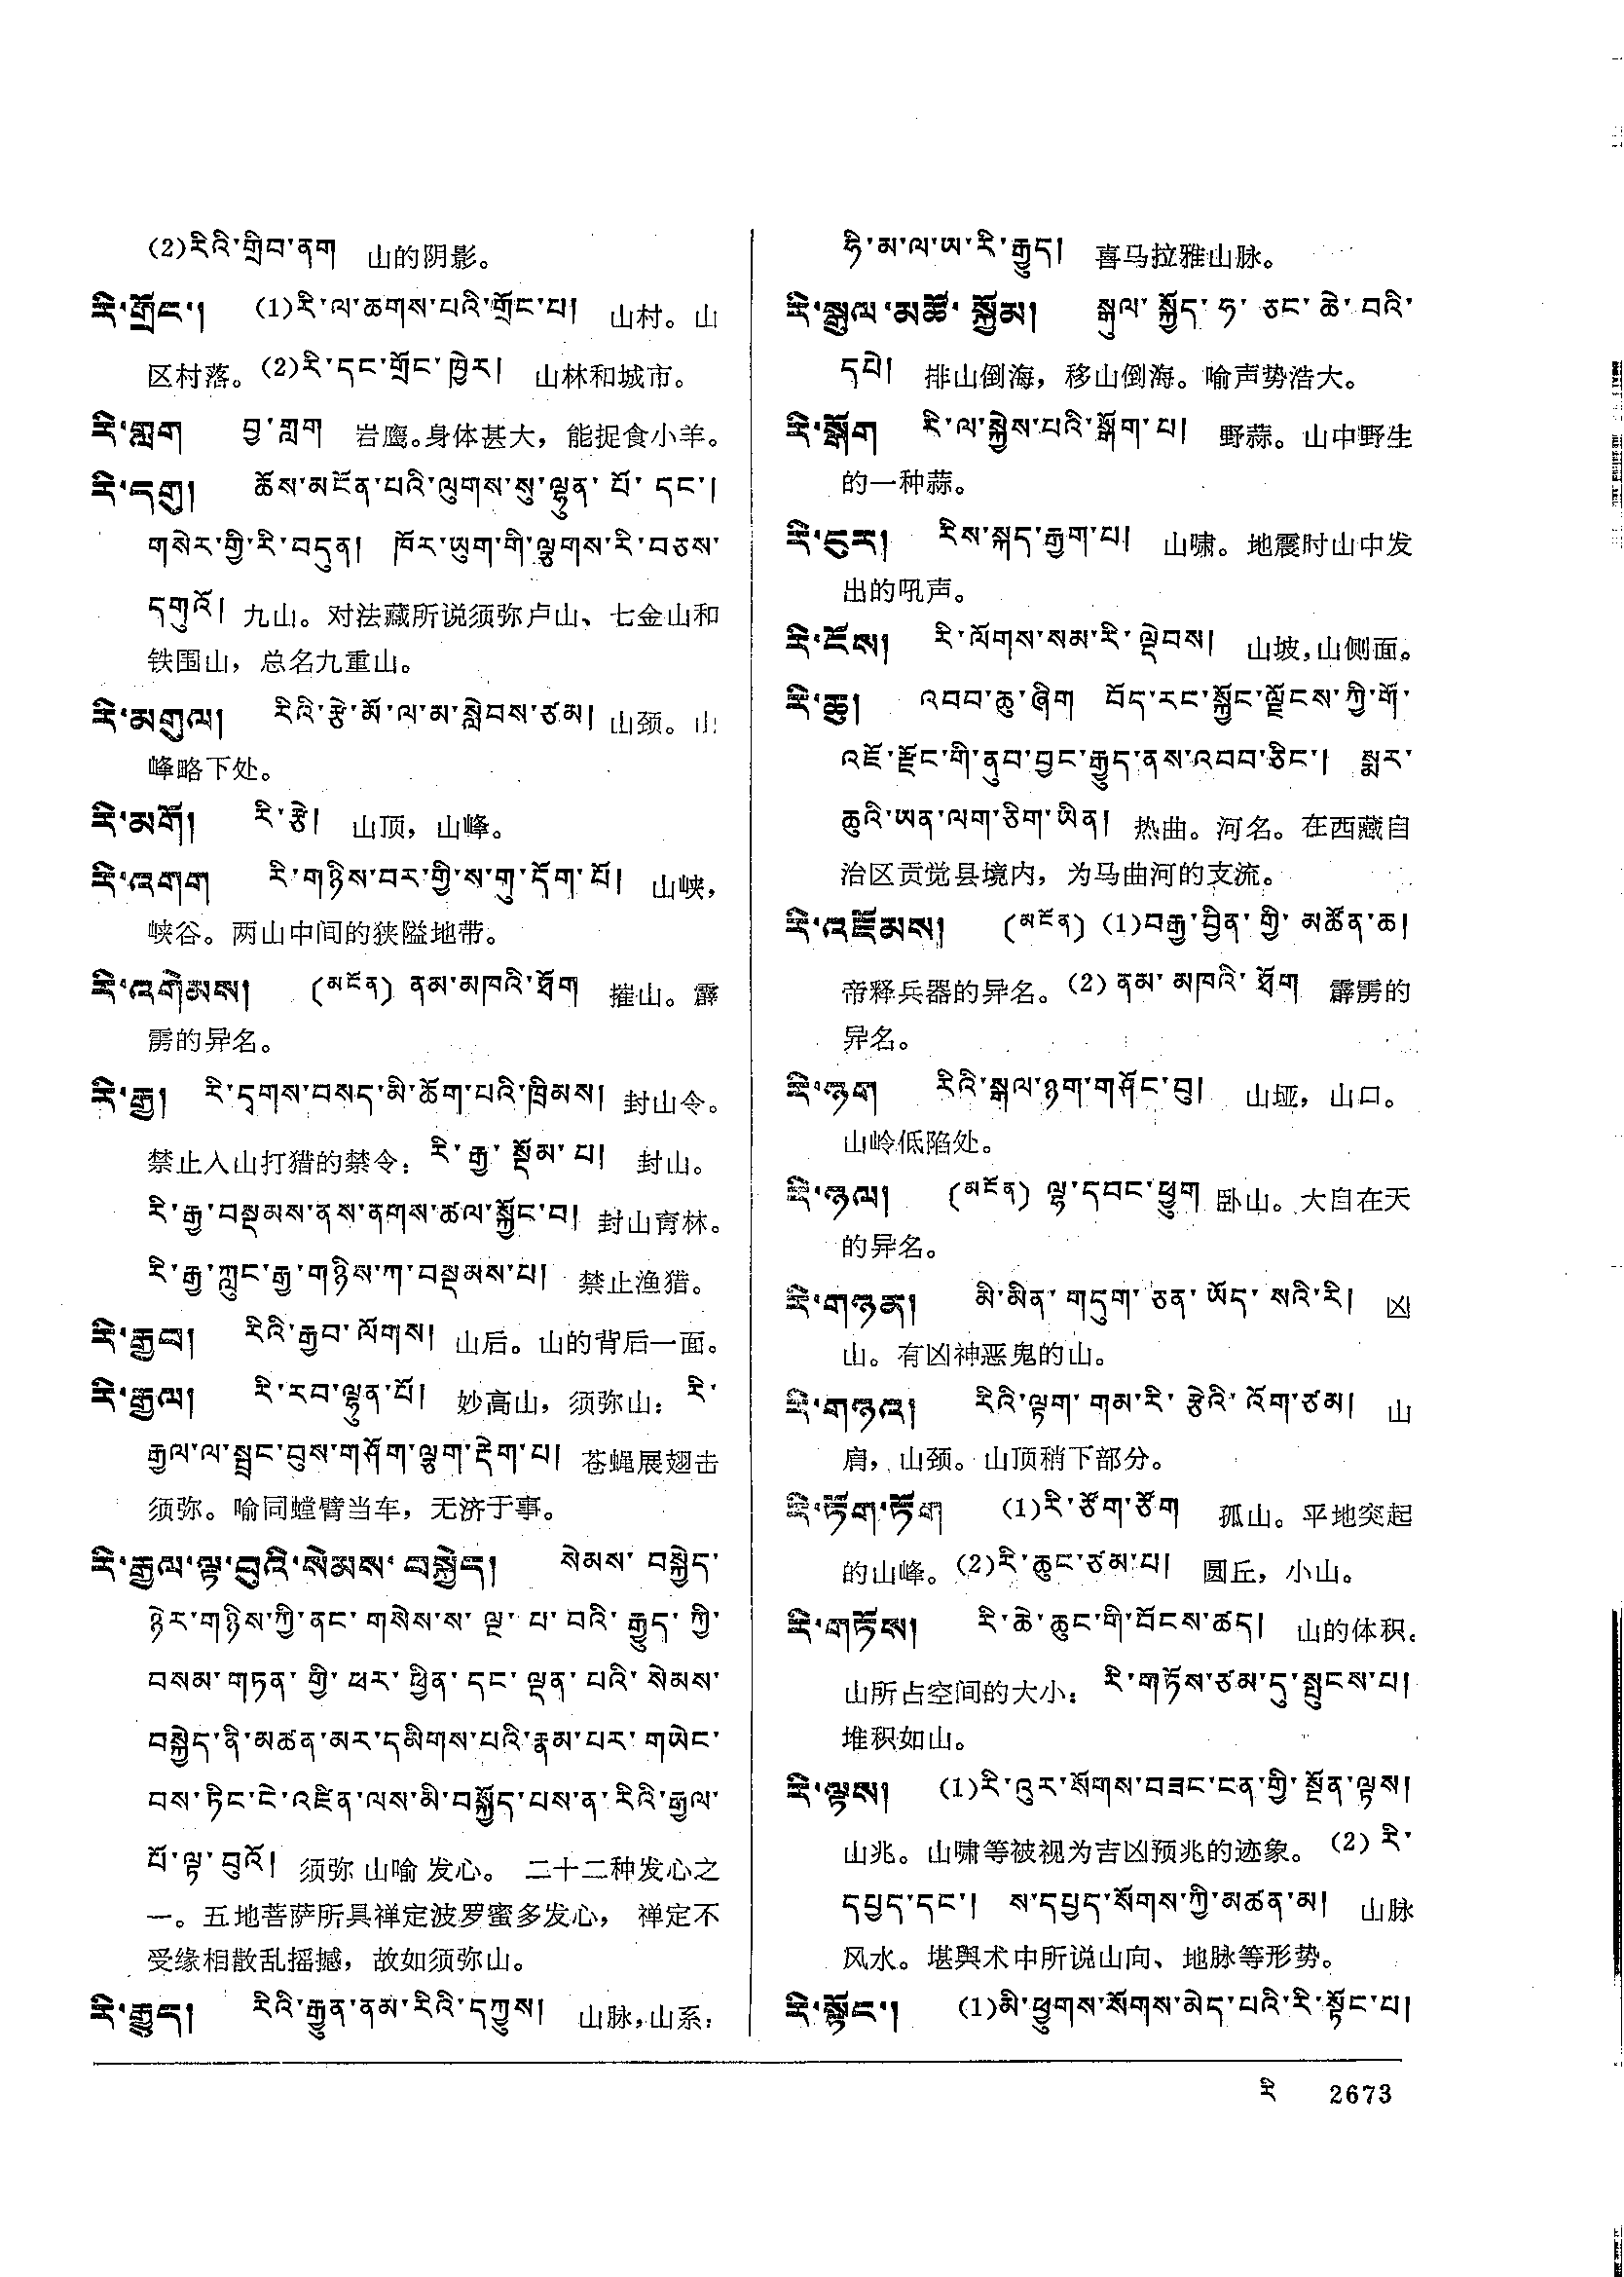 (2)རིའི་གྲིབ་ནག 山的阴影。
རི་གྲོང་། (1)རི་ལ་ཆགས་པའི་གྲོང་པ། 山村。山
区村落。(2)རི་དང་གྲོང་ཁྱེར། 山林和城市。
རི་གླག བྱ་གླག 岩鹰。身体甚大，能捉食小羊。
རི་དགུ། ཆོས་མངོན་པའི་ལུགས་སུ་ལྷུན་པོ་དང་།
གསེར་གྱི་རི་བདུན། ཁོར་ཡུག་གི་ལྕགས་རི་བཅས་
དགུའོ། 九山。对法藏所说须弥卢山、七金山和
铁围山，总名九重山。
རི་མགུལ། རིའི་རྩེ་མོ་ལ་མ་སླེབས་ཙམ། 山颈。山
峰略下处。
རི་མགོ། རི་རྩེ། 山顶，山峰。
རི་འགག རི་གཉིས་བར་གྱི་ས་གུ་དོག་པོ། 山峡，
峡谷。两山中间的狭隘地带。
རི་འགེམས། (མངོན) ནམ་མཁའི་ཐོག 摧山。霹
雳的异名。
རི་རྒྱ། རི་དྭགས་བསད་མི་ཆོག་པའི་ཁྲིམས། 封山令。
禁止入山打猎的禁令：རི་རྒྱ་སྡོམ་པ། 封山。
རི་རྒྱ་བསྡམས་ནས་ནགས་ཚལ་སྐྱོང་བ། 封山育林。
རི་རྒྱ་ཀླུང་རྒྱ་གཉིས་ཀ་བསྡམས་པ། 禁止渔猎。
རི་རྒྱབ། རིའི་རྒྱབ་ལོགས། 山后。山的背后一面。
རི་རྒྱལ། རི་རབ་ལྷུན་པོ། 妙高山，须弥山：རི་
རྒྱལ་ལ་སྦྲང་བུས་གཤོག་ལྕག་རྡེག་པ། 苍蝇展翅击
须弥。喻同螳臂当车，无济于事。
རི་རྒྱལ་ལྟ་བུའི་སེམས་བསྐྱེད། སེམས་བསྐྱེད་
ཉེར་གཉིས་ཀྱི་ནང་གསེས་ས་ལྔ་པ་བའི་རྒྱུད་ཀྱི་
བསམ་གཏན་གྱི་ཕར་ཕྱིན་དང་ལྡན་པའི་སེམས་
བསྐྱེད་ནི་མཚན་མར་དམིགས་པའི་རྣམ་པར་གཡེང་
བས་ཏིང་ངེ་འཛིན་ལས་མི་བསྐྱོད་པས་ན་རིའི་རྒྱལ་
པོ་ལྟ་བུའོ། 须弥山喻发心。二十二种发心之
一。五地菩萨所具禅定波罗蜜多发心，禅定不
受缘相散乱摇撼，故如须弥山。
རི་རྒྱུད། རིའི་རྒྱུན་ནམ་རིའི་དཀྱུས། 山脉，山系：
ཧི་མ་ལ་ཨ་རི་རྒྱུད། 喜马拉雅山脉。
རི་སྒུལ་མཚོ་སྐྱོམ། སྒུལ་སྐྱོད་ཧ་ཅང་ཆེ་བའི་
དཔེ། 排山倒海，移山倒海。喻声势浩大。
རི་སྒོག རི་ལ་སྐྱེས་པའི་སྒོག་པ། 野蒜。山中野生
的一种蒜。
རི་ངུར། རིས་སྐད་རྒྱག་པ། 山啸。地震时山中发
出的吼声。
རི་ངོས། རི་ལོགས་སམ་རི་ལྡེབས། 山坡，山侧面。
རི་ཆུ། འབབ་ཆུ་ཞིག བོད་རང་སྐྱོང་ལྗོངས་ཀྱི་གོ་
འཇོ་རྫོང་གི་ནུབ་བྱང་རྒྱུད་ནས་འབབ་ཅིང་། སྨར་
ཆུའི་ཡན་ལག་ཅིག་ཡིན། 热曲。河名。在西藏自
治区贡觉县境内，为马曲河的支流。
རི་འཇོམས། (མངོན) (1)བརྒྱ་བྱིན་གྱི་མཚོན་ཆ།
帝释兵器的异名。(2) ནམ་མཁའི་ཐོག 霹雳的
异名。
རི་ཉག རིའི་སྒལ་ཉག་གཤོང་བུ། 山垭，山口。
山岭低陷处。
རི་ཉལ། (མངོན) ལྷ་དབང་ཕྱུག 卧山。大自在天
的异名。
རི་གཉན། མི་མིན་གདུག་ཅན་ཡོད་སའི་རི། 凶
山。有凶神恶鬼的山。
རི་གཉའ། རིའི་ལྟག་གམ་རི་རྩེའི་འོག་ཙམ། 山
肩，山颈。山顶稍下部分。
རི་ཏོག་ཏོག (1)རི་ཙོག་ཙོག 孤山。平地突起
的山峰。(2)རི་ཆུང་ཙམ་པ། 圆丘，小山。
རི་གཏོས། རི་ཆེ་ཆུང་གི་བོངས་ཚད། 山的体积。
山所占空间的大小：རི་གཏོས་ཙམ་དུ་སྤུངས་པ།
堆积如山。
རི་ལྟས། (1)རི་འུར་སོགས་བཟང་ངན་གྱི་སྔོན་ལྟས།
山兆。山啸等被视为吉凶预兆的迹象。(2) རི་
དཔྱད་དང་། ས་དཔྱད་སོགས་ཀྱི་མཚན་མ། 山脉
风水。堪舆术中所说山向、地脉等形势。
རི་སྟོང་། (1)མི་ཕྱུགས་སོགས་མེད་པའི་རི་སྟོང་པ།
རི 2673